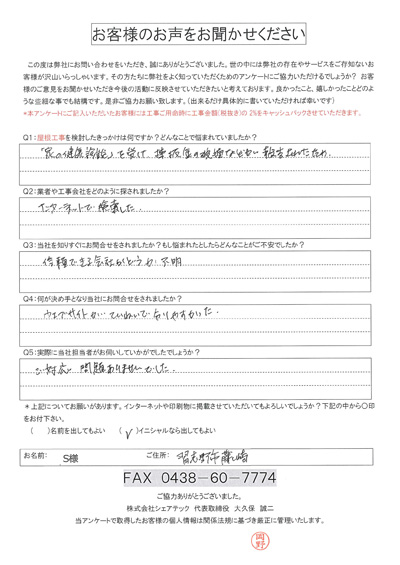 お客様のお声をお聞かせください
この度は弊社にお問い合わせをいただき、誠にありがとうございました。世の中には弊社の存在やサービスをご存知ないお
客様が沢山いらっしゃいます。その方たちに弊社をよく知っていただくためのアンケートにご協力いただけるでしょうか？ お客
様のご意見をお聞かせいただき今後の活動に反映させていただきたいと考えております。良かったこと、嬉しかったことどのよ
うな些細な事でも結構です。是非ご協力お願い致します。（出来るだけ具体的に書いていただければ幸いです）
*本アンケートにご記入いただいたお客様には工事ご用命時に工事金額（税抜き）の 2%をキャッシュバックさせていただきます。
Q1：屋根工事を検討したきっかけは何ですか？どんなことで悩まれていましたか？
「家の健康診断」を受け、棟板金の
Q2：業者や工事会社をどのように探されましたか？
インターネットで検索した。
Q3：当社を知りすぐにお問合せをされましたか？もし悩まれたとしたらどんなことがご不安でしたか？
信頼できる会社かどうか不明
Q4：何が決め手となり当社にお問合せをされましたか？
ウェブサイトがていねいで分りやすかった。
Q5：実際に当社担当者がお伺いしていかがでしたでしょうか？
ご対応に問題ありませんでした。
＊上記についてお願いがあります。インターネットや印刷物に掲載させていただいてもよろしいでしょうか？下記の中から〇印
をお付下さい。
（　）名前を出してもよい　（✓）イニシャルなら出してもよい
お名前： S様 ご住所： 習志野市藤崎
FAX 0438－60－7774
ご協力ありがとうございました。
株式会社シェアテック 代表取締役 大久保 誠二
当アンケートで取得したお客様の個人情報は関係法規に基づき厳正に管理いたします。
岡野